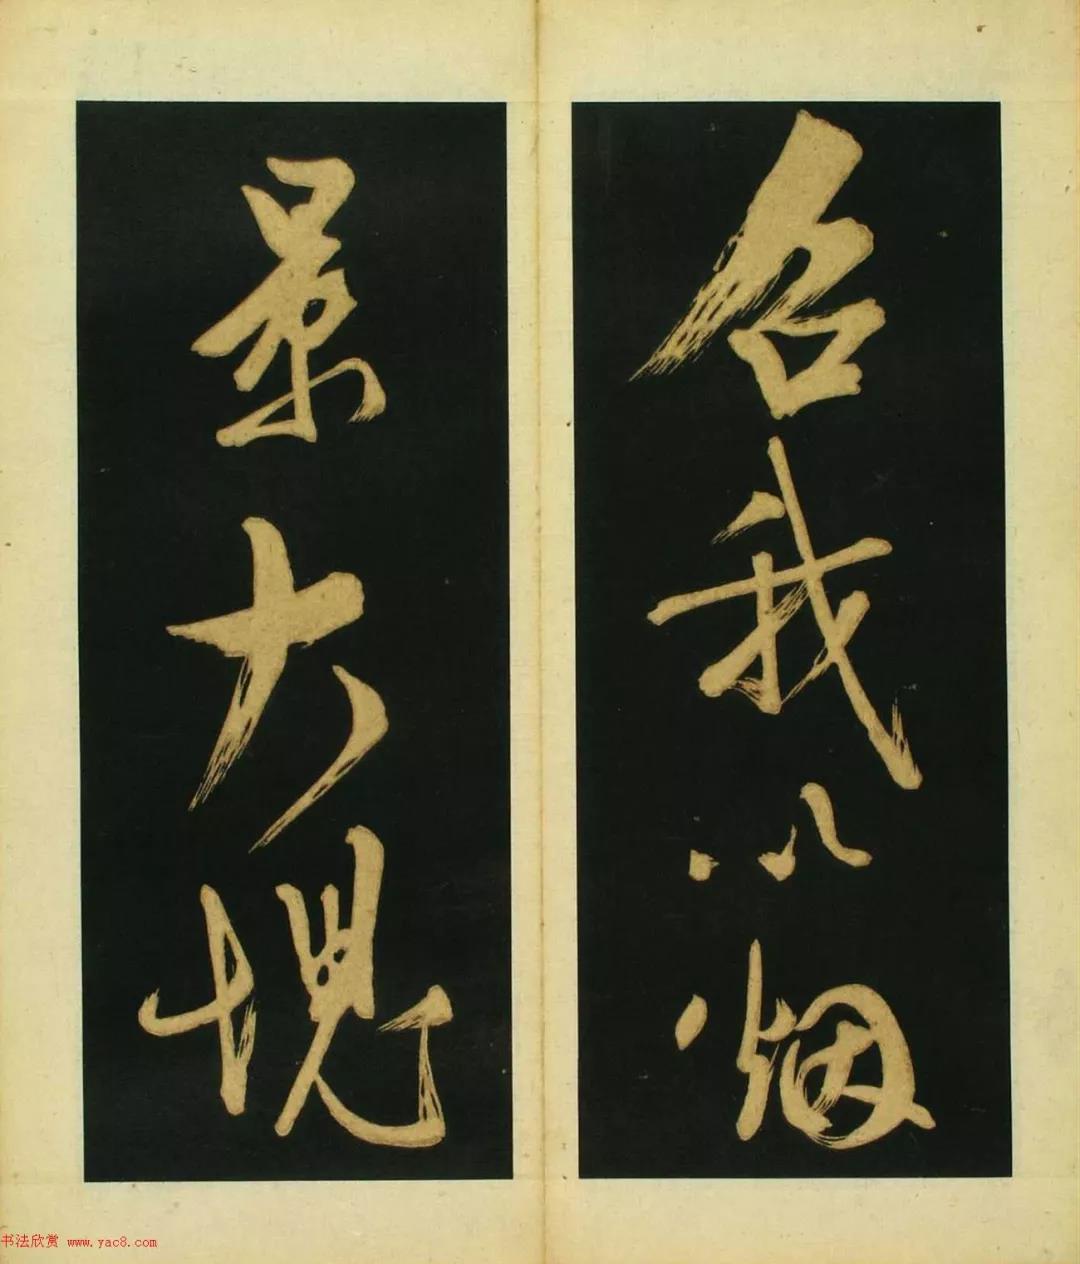 召我以烟
景大塊
书法欣赏 www.yac8.com